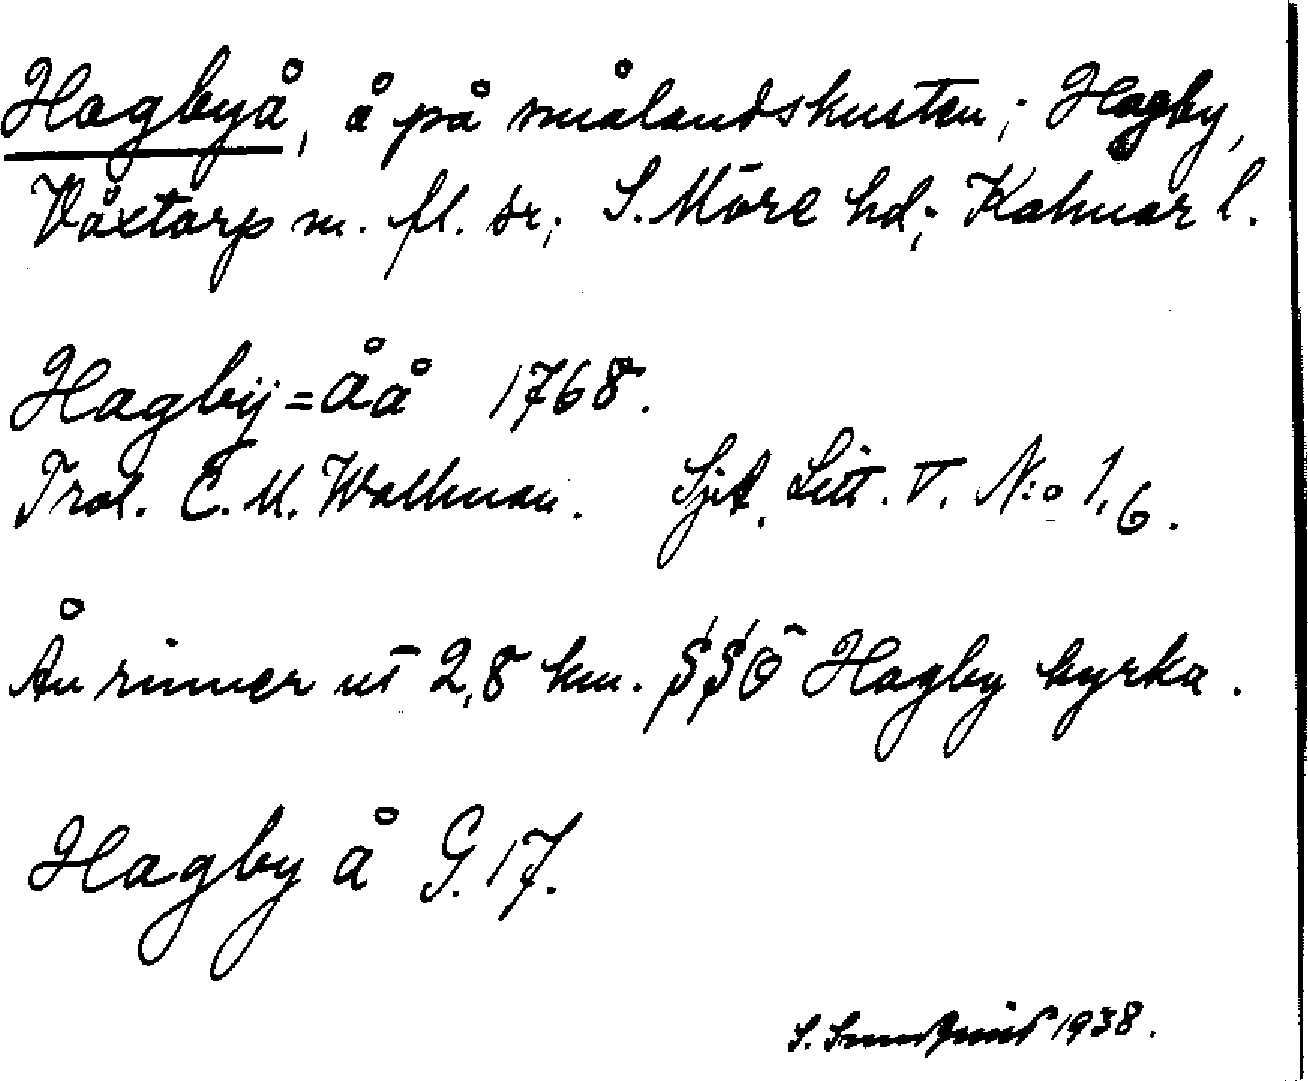 Hagbyå, å på smålandskusten; Hagby,
Våxtorp m. fl. sr; S. Möre hd; Kalmar l.
Hagbÿ=åå 1768.
Trol. C. M. Wallman. Sjst. Litt. V. N:o 1,6.
Ån rinner ut 2,8 km. SSÖ Hagby kyrka.
Hagby å G. 17.
S. 1938.